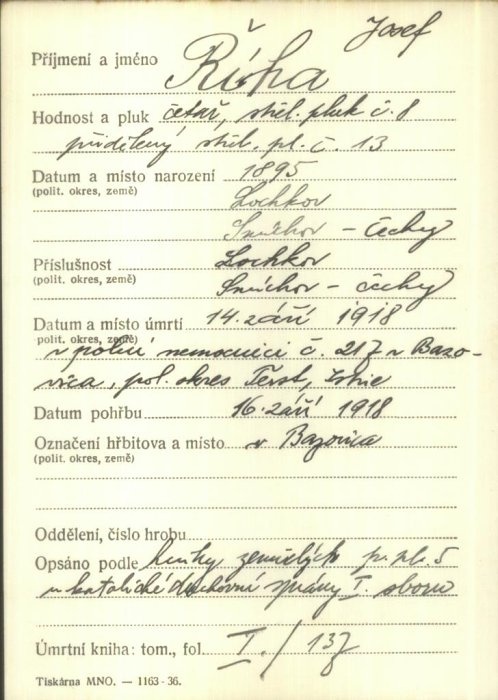 Josef
Příjmení a jméno Říha
Hodnost a pluk četař, střel. pluk č. 8
přidělený střel. pl. č. 13
Datum a místo narození 1895
(polit. okres, země) Lochkov
Smíchov - Čechy
Příslušnost Lochkov
(polit. okres, země) Smíchov - Čechy
Datum a místo úmrtí 14. září 1918
polit. okres, země)
v polní nemocnici č. 217 v Bazo-
vica, pol. okres Terst, Istrie
Datum pohřbu 16. září 1918
Označení hřbitova a místo v Bazovica
(polit. okres, země)
Oddělení, číslo hrobu
Opsáno podle knihy zemřelých p. pl. 5
u katolické duchovní správy I. sboru
Úmrtní kniha: tom., fol. I. / 137
Tiskárna MNO. — 1163-36.